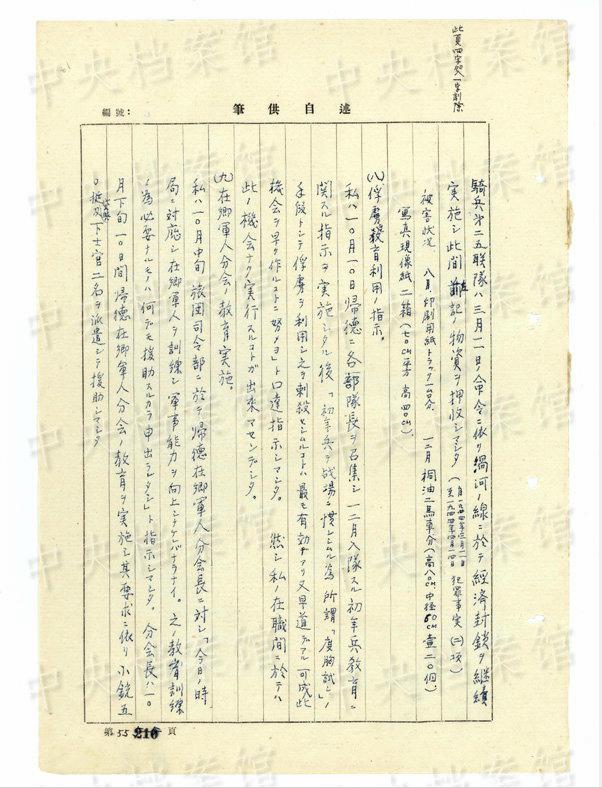 此頁四字処一字削除
編號：
筆供自述
騎兵第二五聯隊ハ三月一一日、命令ニ依リ渦河ノ線ニ於テ経済封鎖ヲ継続
実施シ此間前記ノ物資ヲ押收シマシタ（自一九四四年三月一一日至一九四四年四月一四日 犯罪事実(二)項）
被害状况 八月、印刷用紙トラック一台分、 一二月 桐油二馬車分（高八〇CM中径50CM壺二〇個）
寫真現像紙二箱（七〇CM平方 高四〇CM）．
(八)俘虜殺害利用ノ指示。
私ハ一〇月一〇日帰德ニ各部隊長ヲ召集シ一二月入隊スル初年兵教育ニ
関スル指示ヲ実施シタル後「初年兵ヲ战場ニ慣レシムル為所謂「度胸試シ」ノ
手段トシテ俘虜ヲ利用シ之ヲ刺殺セシムルコトハ最モ有効デアリ又早道デアル可成此
機会ヲ早ク作ルコトニ努メヨ」ト口達指示シマシタ。 然シ私ノ在職間ニ於テハ
此ノ機会ナク実行スルコトガ出来マセンデシタ。
(九)在郷軍人分会ノ教育実施。
私ハ一〇月中旬旅团司令部ニ於テ帰德在郷軍人分会長ニ対シ「今日ノ時
局ニ対應シ在郷軍人ヲ訓練シ軍事能力ヲ向上シナケレバナラナイ。之ノ教育訓練
ノ為必要ナルモノハ何デモ援助スルカラ申出ラレタシ」ト指示シマシタ。 分会長ハ一〇
月下旬一〇日間帰德在郷軍人分会ノ教育ヲ実施シ其要求ニ依リ小銃五
〇挺及下士官二名ヲ派遣シテ援助シマシタ
第55 210頁
中央档案馆